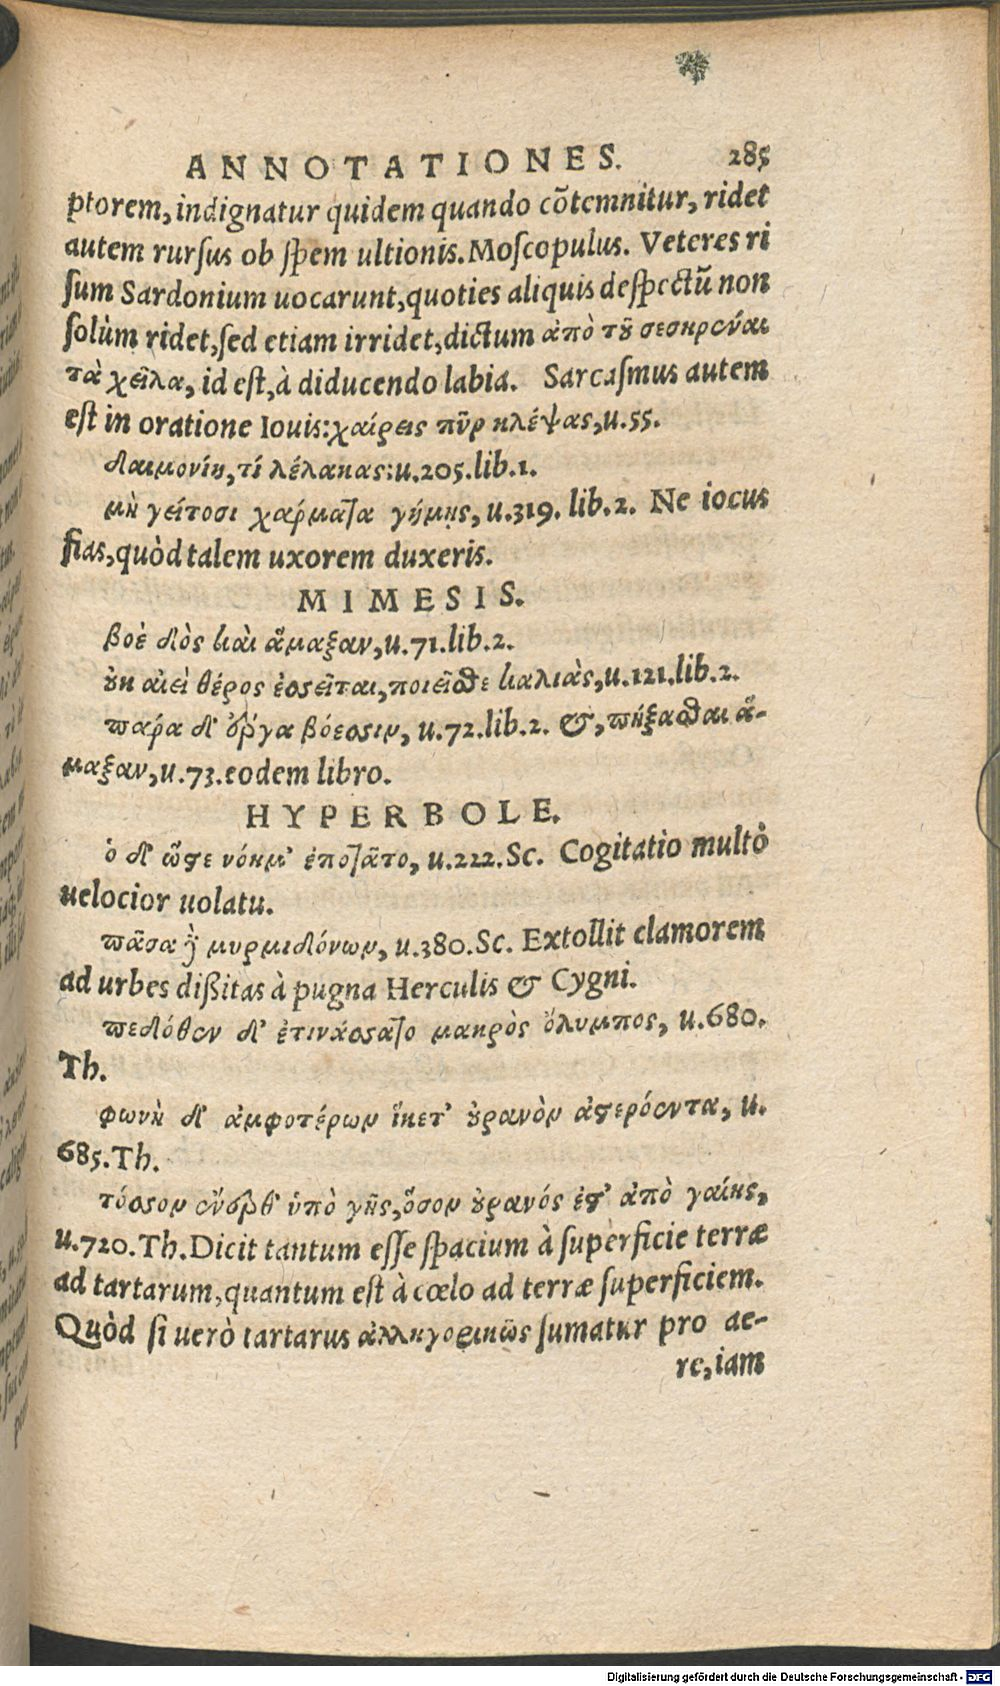 ANNOTATIONES. 285
ptorem, indignatur quidem quando cõtemnitur, ridet
autem rursus ob spem ultionis. Moscopulus. Veteres ri
sum Sardonium uocarunt, quoties aliquis despectũ non
solùm ridet, sed etiam irridet, dictum ἀπὸ τȣ̃ σεσηρέναι
τὰ χεῖλα, id est, à diducendo labia. Sarcasmus autem
est in oratione Iouis: χαίρεις πῦρ κλέψας, u. 55.
δαιμονίη, τί λέλακας: u. 205. lib. 1.
μὴ γείτοσι χάρματα γήμης, u. 319. lib. 2. Ne iocus
fias, quòd talem uxorem duxeris.
MIMESIS.
βοὲ δὸς καὶ ἅμαξαν, u. 71. lib. 2.
ȣ̓κ αἰεὶ θέρος ἐσσεῖται, ποιεῖσθε καλιὰς, u. 121. lib. 2.
πάρα δ' ἔργα βόεσσιν, u. 72. lib. 2. &, πήξασθαι ἅ-
μαξαν, u. 73. eodem libro.
HYPERBOLE.
ὁ δ' ὥστε νόημ' ἐποτᾶτο, u. 222. Sc. Cogitatio multò
uelocior uolatu.
πᾶσα δὲ μυρμιδόνων, u. 380. Sc. Extollit clamorem
ad urbes dißitas à pugna Herculis & Cygni.
πεδόθεν δ' ἐτινάσσατο μακρὸς ὄλυμπος, u. 680.
Th.
φωνὴ δ' ἀμφοτέρων ἵκετ' ȣ̓ρανὸν ἀστερόεντα, u.
685. Th.
τόσσον ἔνερθ' ὑπὸ γῆς, ὅσον ȣ̓ρανός ἐστ' ἀπὸ γαίης,
u. 720. Th. Dicit tantum esse spacium à superficie terræ
ad tartarum, quantum est à cœlo ad terræ superficiem.
Quòd si uerò tartarus ἀλληγορικῶς sumatur pro ae-
re, iam
Digitalisierung gefördert durch die Deutsche Forschungsgemeinschaft - DFG